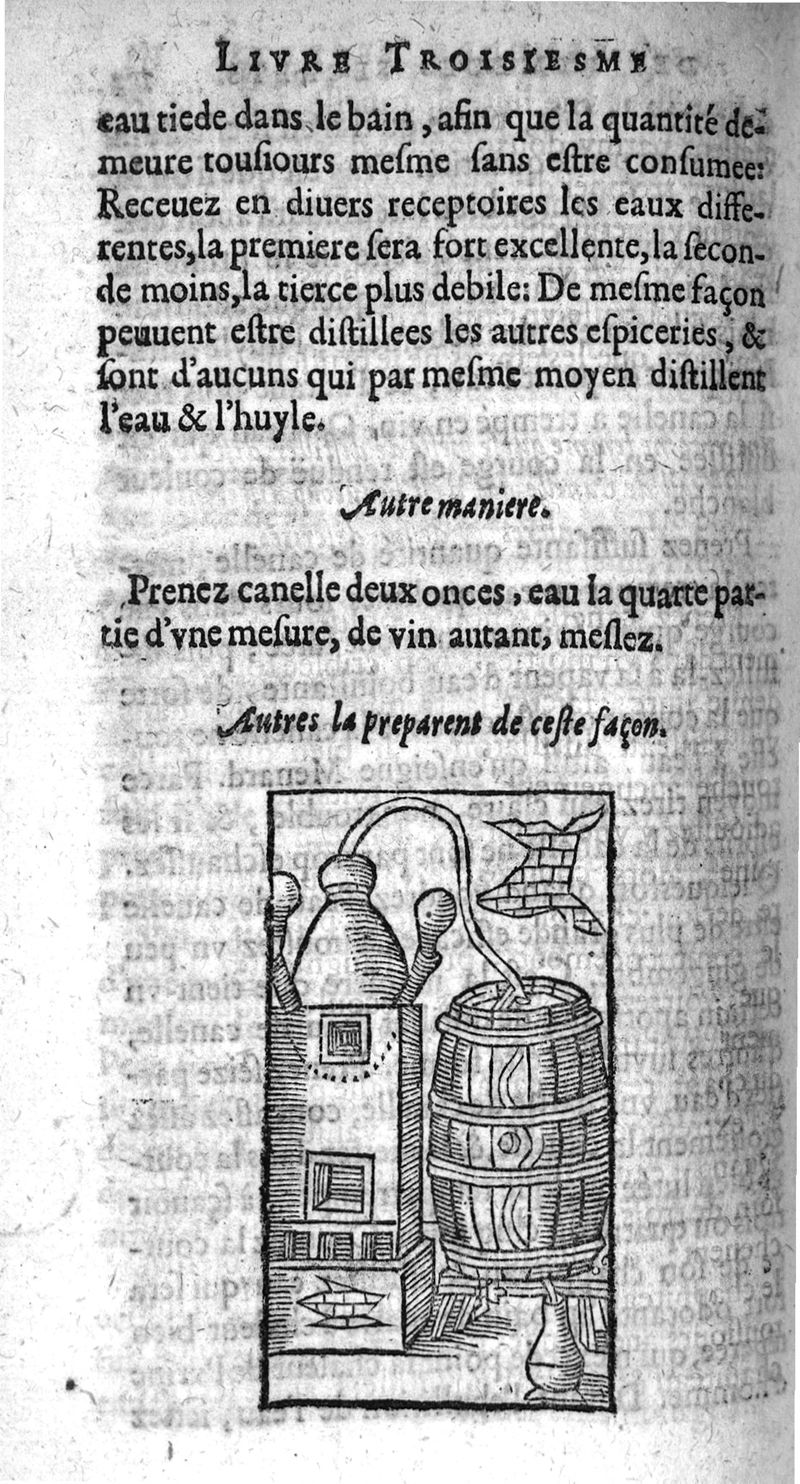 LIVRE TROISIESME
eau tiede dans le bain, afin que la quantité de-
meure tousiours mesme sans estre consumee:
Receuez en diuers receptoires les eaux diffe-
rentes, la premiere sera fort excellente, la secon-
de moins, la tierce plus debile: De mesme façon
peuuent estre distillees les autres espiceries, &
sont d'aucuns qui par mesme moyen distillent
l'eau & l'huyle.
Autre maniere.
Prenez canelle deux onces, eau la quarte par-
tie d'vne mesure, de vin autant, meslez.
Autres la preparent de ceste façon.